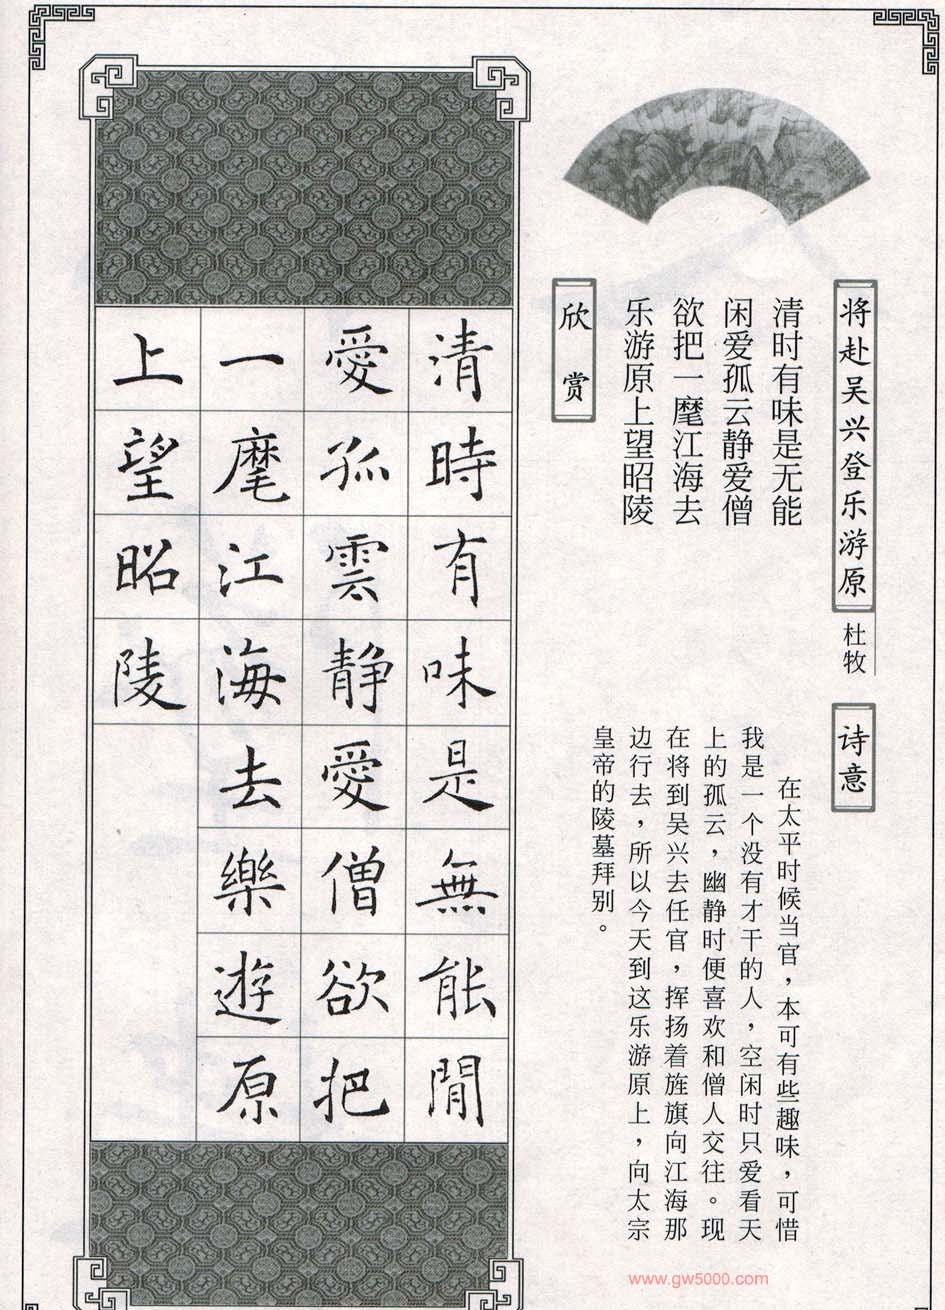 将赴吴兴登乐游原
杜牧
清时有味是无能
闲爱孤云静爱僧
欲把一麾江海去
乐游原上望昭陵
诗意
在太平时候当官，本可有些趣味，可惜
我是一个没有才干的人，空闲时只爱看天
上的孤云，幽静时便喜欢和僧人交往。现
在将到吴兴去任官，挥扬着旌旗向江海那
边行去，所以今天到这乐游原上，向太宗
皇帝的陵墓拜别。
欣赏
清時有味是無能閒
愛孤雲靜愛僧欲把
一麾江海去樂遊原
上望昭陵
www.gw5000.com